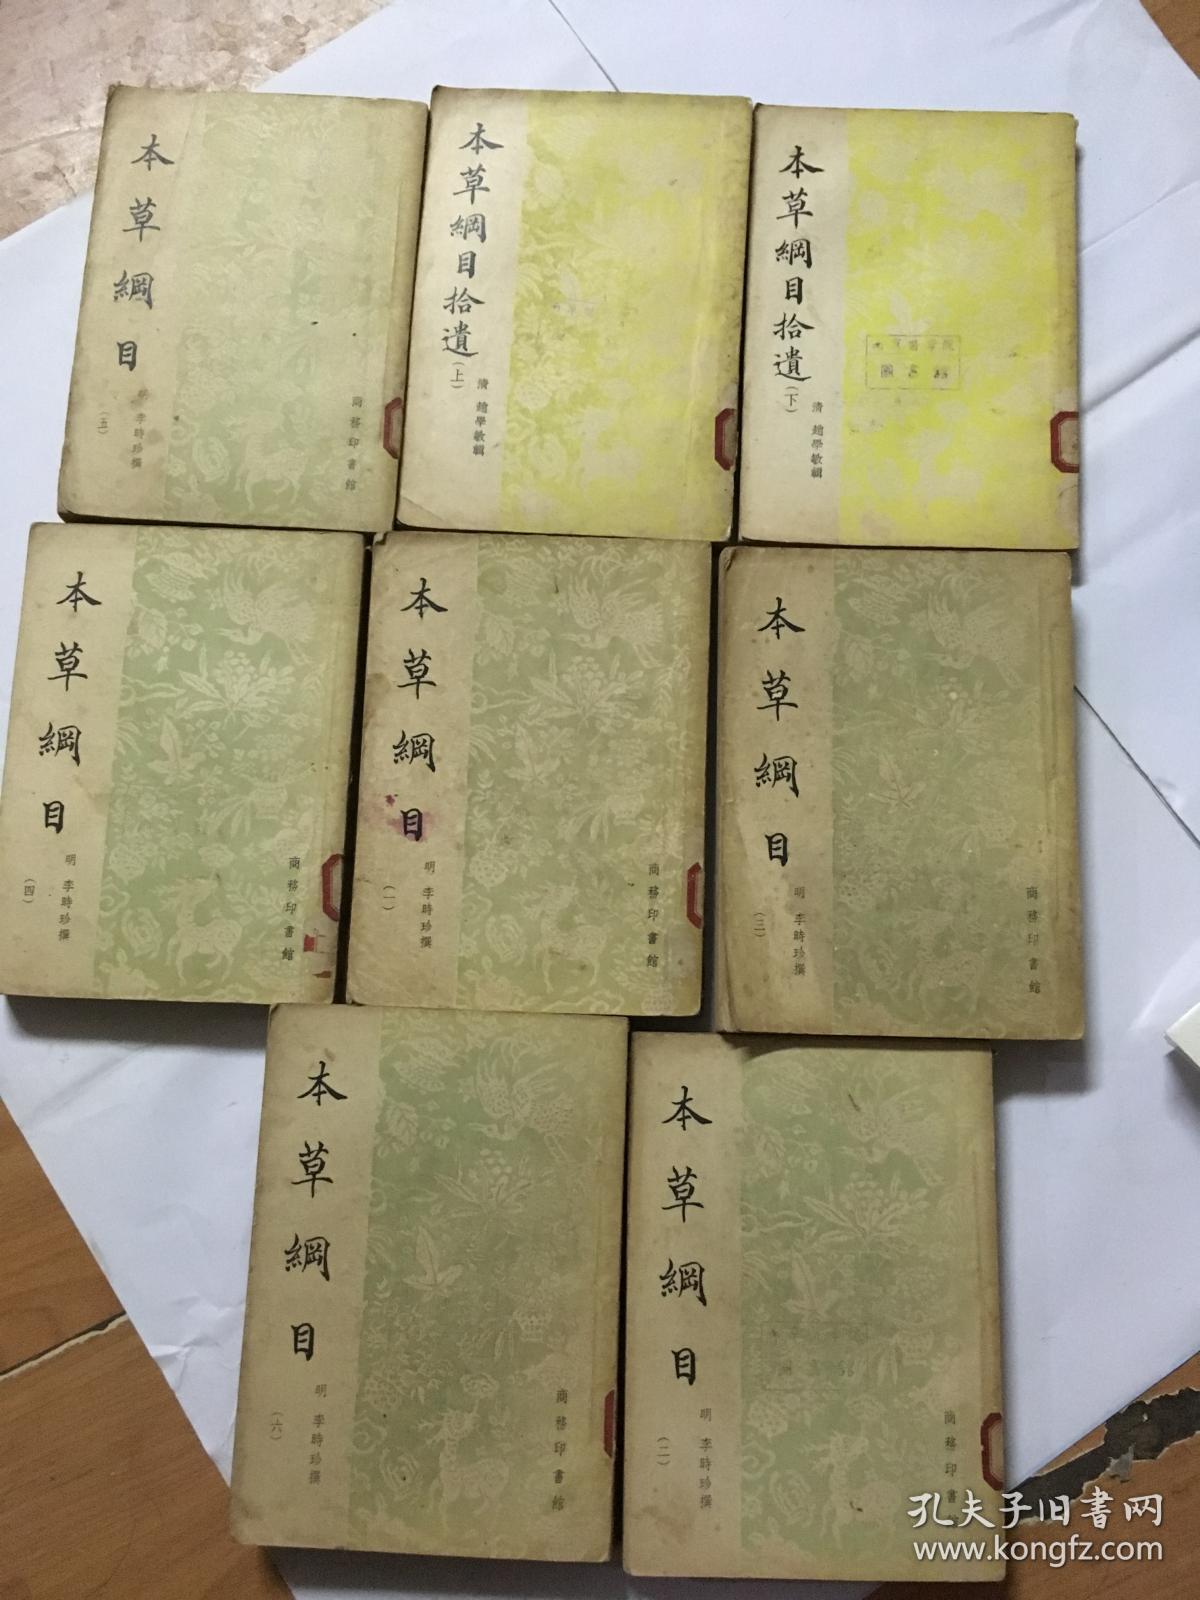 本草綱目
明 李時珍撰
(五)
商務印書館
本草綱目拾遺(上)
清 趙學敏輯
本草綱目拾遺(下)
清 趙學敏輯
本草綱目
明 李時珍撰
(四)
商務印書館
本草綱目
明 李時珍撰
(一)
商務印書館
本草綱目
明 李時珍撰
(三)
商務印書館
本草綱目
明 李時珍撰
(六)
商務印書館
本草綱目
明 李時珍撰
(二)
商務印書
孔夫子旧书网
www.kongfz.com